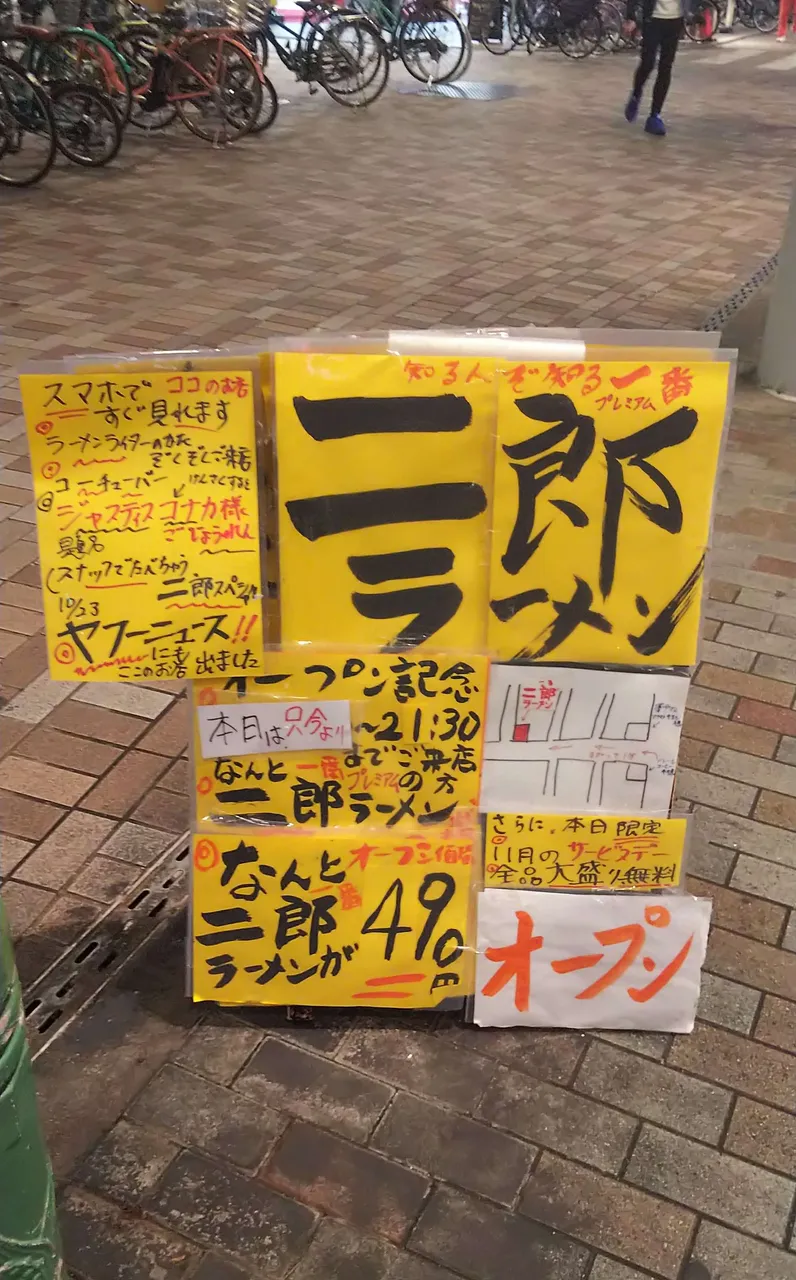 スマホで ココのお店
すぐ見れます
ラーメンライターのかた
ぞくぞくご来店
ユーチューバー けんさくすると
ジャスティス コナカ様
ごじょうれん
題名
(スナックでたべちゃう
二郎スペシャル
10/23
ヤフーニュース!!
にも
ここのお店 出ました
知る人ぞ知る一番
プレミアム
二郎
ラーメン
オープン記念
本日は只今より
~21:30
までご来店
の方
なんと一番
プレミアム
二郎ラーメン
なんとオープン価格
一番
二郎
ラーメンが
490円
二郎
ラーメン
さらに、本日限定
11月のサービスデー
全品大盛り無料
オープン